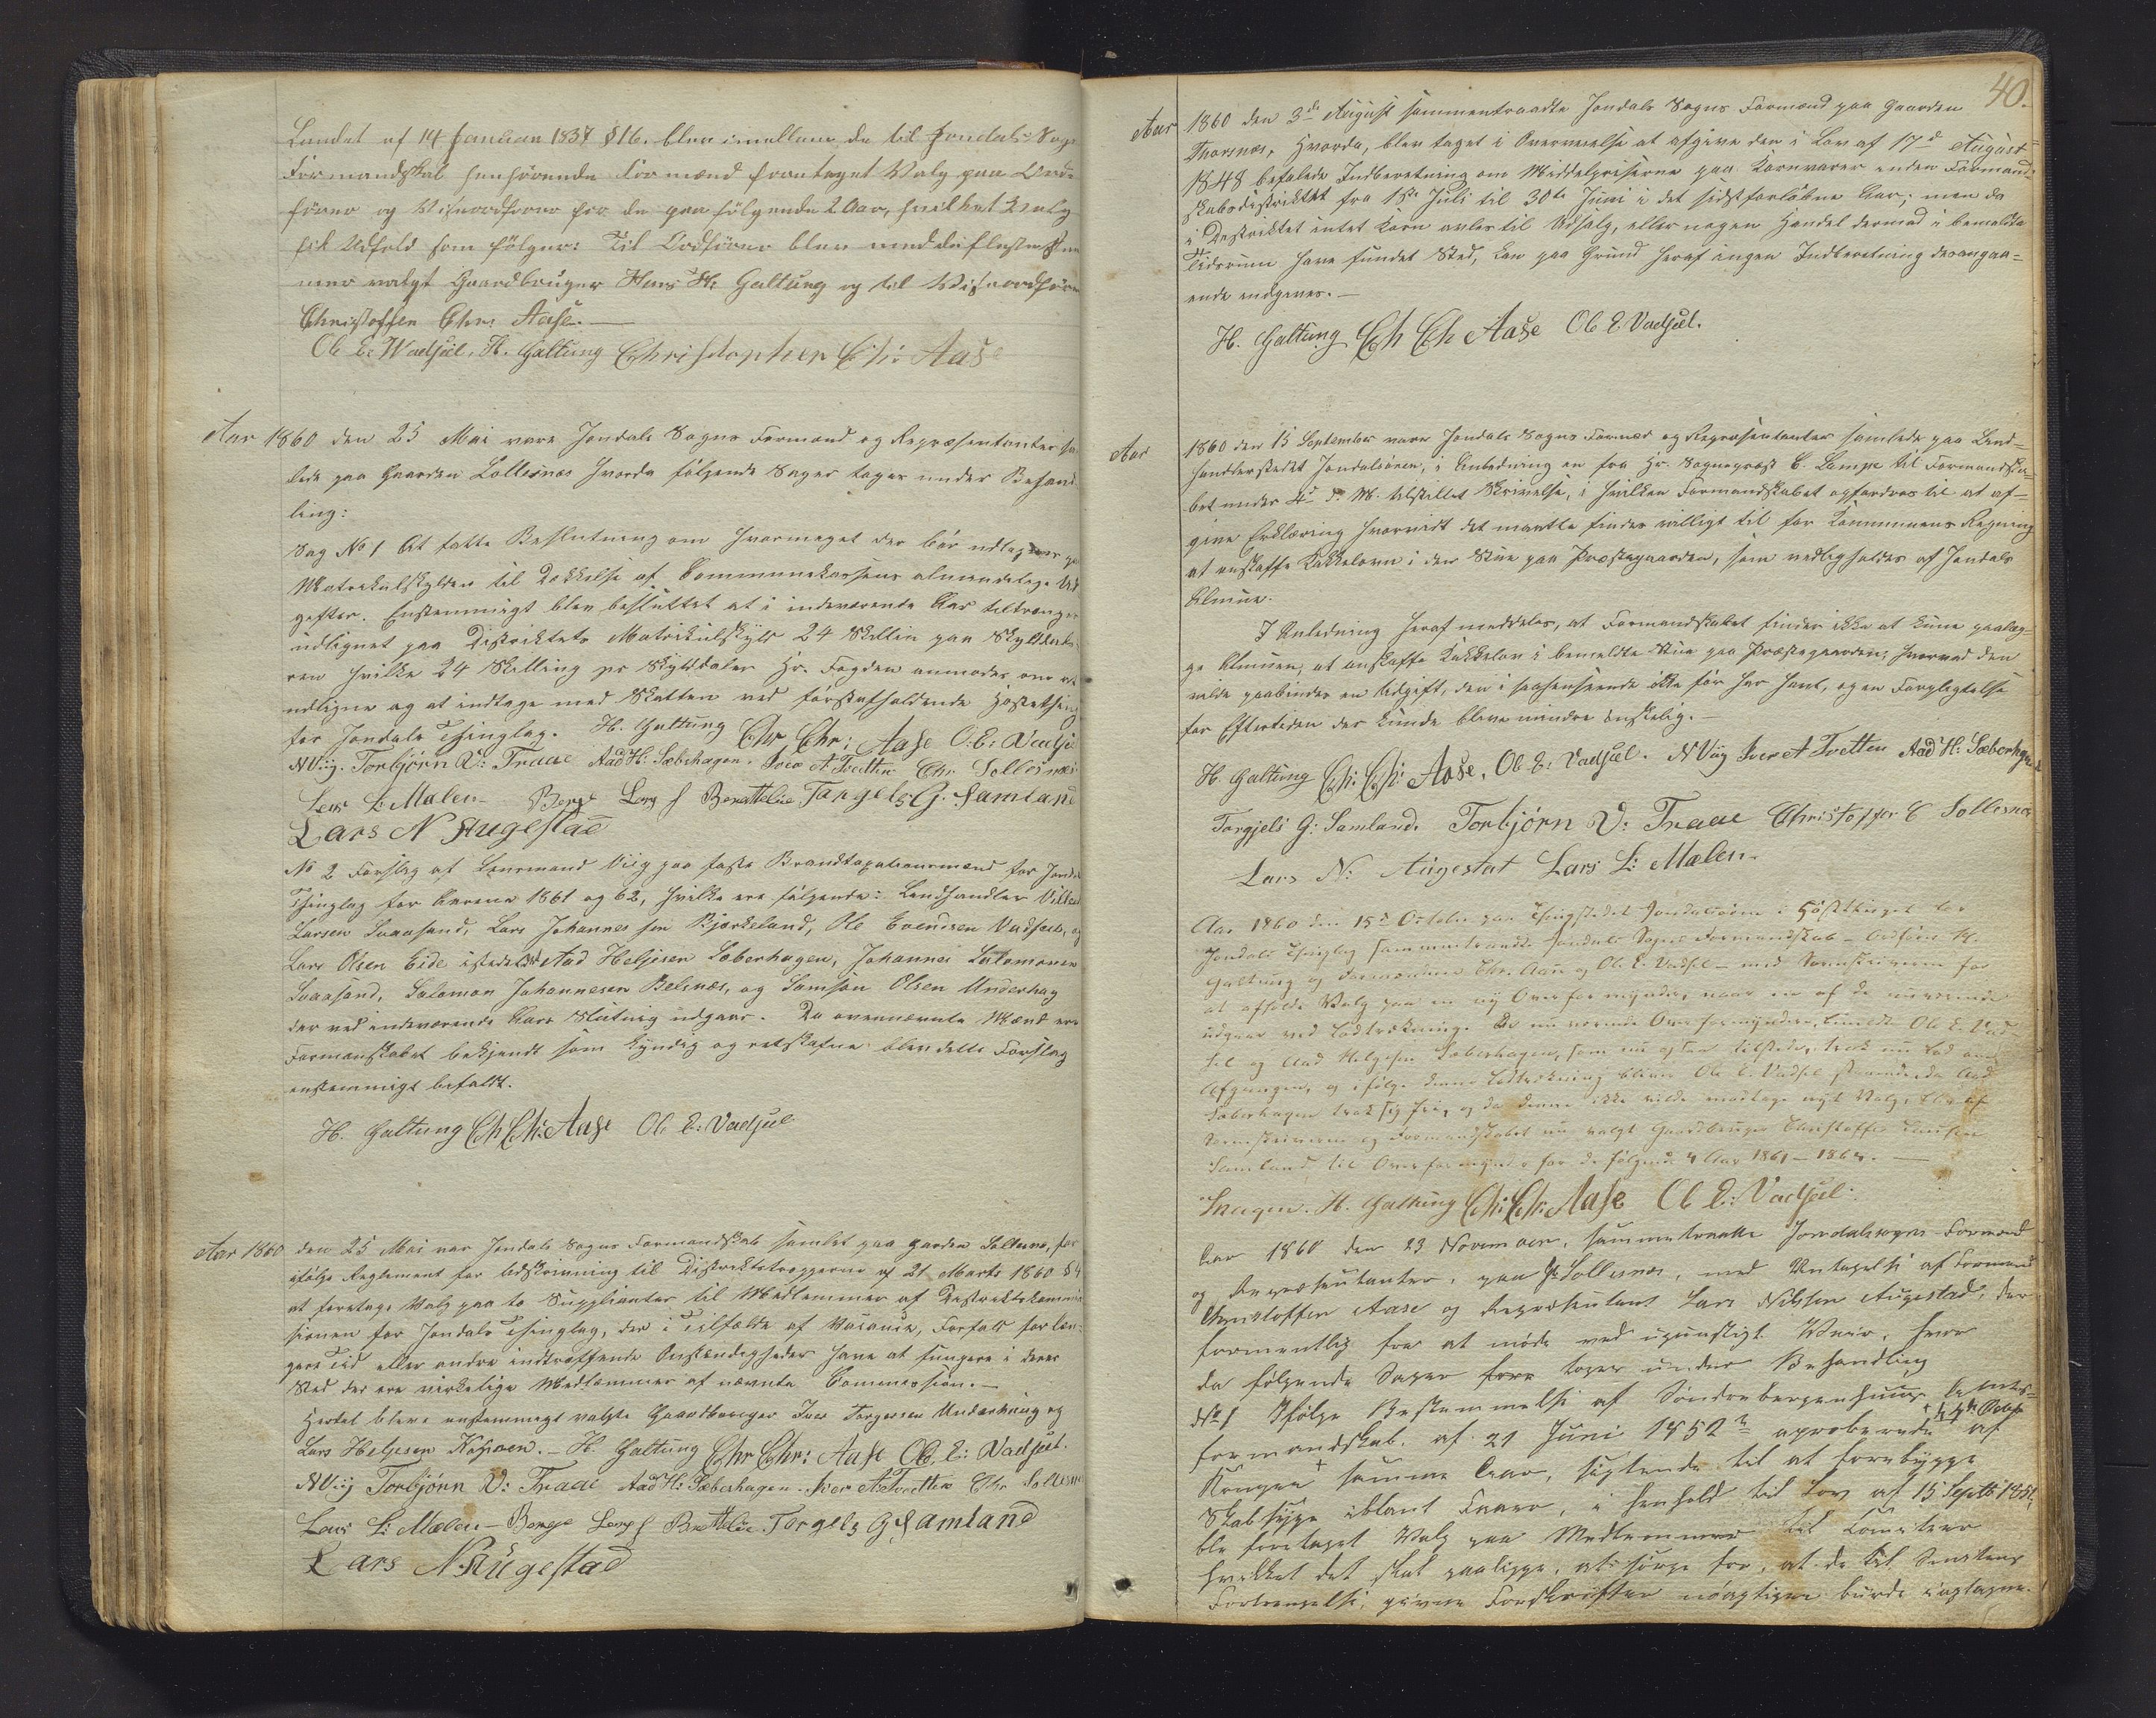 Landet af 14 Januar 1837 § 16. blev imellem de til Jondals Sogns
Formandskab henhørende Formænd foretaget Valg paa Ord-
fører og Viseordfører for de paa følgende 2 Aar, hvilket Valg
fik Udfald som følger: Til Ordfører blev med de fleste Stem
mer valgt Gaardbruger Hans H. Galtung og til Viseordfører
Christoffer Chr. Aase.—
Ole E: Vadsel. H. Galtung Christopher Chr: Aase
Aar 1860 den 25 Mai vare Jondals Sogns Formænd og Repræsentanter sam
lede paa Gaarden Sollesnæs hvorda følgende Sager toges under Behand
ling:
Sag No 1 At fatte Beslutning om hvormeget der bør udlignes paa
Matrikulskylden til Dækkelse af Communekassens almindelige Ud
gifter. Enstemmigt blev besluttet at i indeværende Aar tiltrænges
udlignet paa Distriktets Matrikulskyld 24 Skilling paa Skylddale
ren hvilke 24 Skilling pr Skylddaler Hr. Fogden anmodes om at
udligne og at indtage med Skatten ved førstafholdende Høstething
for Jondals Thinglag. H. Galtung Chr Chr: Aase O: E: Vadsel
N Viig. Torbjørn V: Traae Aad H: Sæberhagen. Iver A Tvetten Chr Sollesnæs
Lars L: Mælen – Berge Larss Brattelie Torgels G. Samland
Lars N Augestad
No 2 Forslag af Lensmand Viig paa faste Brandtaxationsmænd for Jondals
Thinglag for Aarene 1861 og 62, hvilke ere følgende: Landhandler
Larsen Svaasand, Lars Johannessen Bjørkeland, Ole Evensen Vadsel, og
Lars Olsen Eide istedetfor Aad Heljesen Sæberhagen, Johannes Salomonsen
Svaasand, Salomon Johannesen Belsnæs, og Samson Olsen Underhaug
der ved indeværende Aars Slutning udgaar. Da ovennævnte Mænd ere
Formanskabet bekjendt som kyndig og retskafne blev dette Forslag
enstemmigt befaldt.
H. Galtung Ch Ch: Aase Ole E: Vadsel
Aar 1860 den 25 Mai var Jondals Sogns Formandskab samlet paa Garden Sollesnæs, for
ifølge Reglement for Udskrivning til Distriktstropperne af 21 Marts 1860 § 4
at foretage Valg paa to Supplianter til Medlemmer af Distriktskommis
sionen for Jondals Thinglag, der i Tilfælde af Vacance, Forfald for læn-
gere Tid eller andre indtræffende Omstændigheder have at fungere i deres
Sted der ere virkelige Medlemmer af nævnte Commission.—
Hertil bleve enstemmigt valgte Gaardbruger Iver Torgersen Underhaug og
Lars Heljesen . – H. Galtung Chr Chr: Aase Ole E: Vadsel.
N Viig Torbjørn V: Traae Aad H: Sæberhagen. Iver A Tvetten Chr Sollesnæs
Lars L: Mælen – Berge Larss Brattelie. Torgels G Samland
Lars N Augestad
40.
Aar 1860 den 3de August sammentraadte Jondals Sogns Formænd paa Gaarden
Thorsnæs, hvorda, blev taget i Overveielse at afgive den i Lov af 17de August
1848 befalede Indberetning om Middelpriserne paa Kornvarer under Formand-
skabsdistriktet fra 1ste Juli til 30te Juni i det sidstforløbne Aar; men da
i Destriktet intet Korn avles til Udsalg, eller nogen Handel dermed i bemeldte
Tidsrum have fundet Sted, kan paa Grund heraf ingen Indberetning desangaa-
ende indgives.—
H. Galtung Ch Ch Aase Ole E. Vadsel.
Aar 1860 den 15 September vare Jondals Sogns Formæd og Repræsentanter samlede paa Land-
handlerstedet Jondalsøren, i Anledning en fra Hr. Sogneprest C. Lampe til Formandska-
bet under 4de d. M. tilstillet Skrivelse, i hvilken Formandskabet opfordres til at af-
give Erklæring hvorvidt det maatte findes villigt til for Kommunens Regning
at anskaffe Kakkelovn i den Stue paa Præstegaarden, som vedligholdes af Jondals
Almue.
I Anledning heraf meddeles, at Formandskabet finder ikke at kunne paalæg-
ge Almuen, at anskaffe Kakkelovn i bemeldte Stue paa Præstegaarden, hvorved den
vilde paabindes en Udgift, den i saahenseende ikke før har havt, og en Forpligtelse
for Eftertiden der kunde bleve mindre ønskelig.—
H. Galtung Ch: Ch: Aase. Ole E: Vadsel. N Viig Iver A Tvetten Aad H: Sæberhagen
Torgjels G: Samland. Torbjørn V: Traae Christoffer C Sollesnæs
Lars N: Augestat Lars L: Mælen.
Aar 1860 den 15de October paa Thingstedet Jondalsøren i Høstthinget for
Jondals Thinglag sammentraadte Jondals Sogns Formandskab – Ordfører H.
Galtung og Formændene Chr. Aase og Ole E. Vadsel – med Sorenskriveren for
at afholde Valg paa en ny Overformynder, naar en af de nuværende
udgaar ved Lodtrækning. De nu værende Overformyndere, bemeldte Ole E. Vad
sel og Aad Helgesen Sæberhagen, som nu ere tilstede, trak nu Lod om
Afgangen, og ifølge denne Lodtrækning bliver Ole E. Vadsel fratrædende Aad
Sæberhagen trak sig fri, og da denne ikke vilde modtage nyt Valg, blev af
Sorenskriveren og Formandskabet nu valgt Gaardbruger Christoffer
Samland til Overformynder for de følgende 4 Aar 1861 – 1864.—
H. Galtung Ch: Ch: Aase Ole E: Vadsel:
Aar 1860 den 23 November, sammentraatte Jondalssogns Formænd
og Repræsentanter, paa Sollesnæs, med Undtagelse af Formand
Christoffer Aase og Repræsentant Lars Nilssen Augestad, der
formentlig for at møde ved ugunstigt Veir, hvor
da følgende Sager fore toges under Behandling
No 1 Ifølge Bestemmelse af Søndrebergenhuus Amts-
formandskab, af 21 Juni 1852 aproberede af
Kongen + samme Aar, sigtende til at forebygge
Skabsyge iblant Faarer, i henhold til Lov af 15 Septbr 1851,
ble foretaget Valg paa Medlemmer til Comiteer
hvilket det skal paaligge, at sørge for, at de til
givne Forskrifter nøiagtigen burde iagtages.